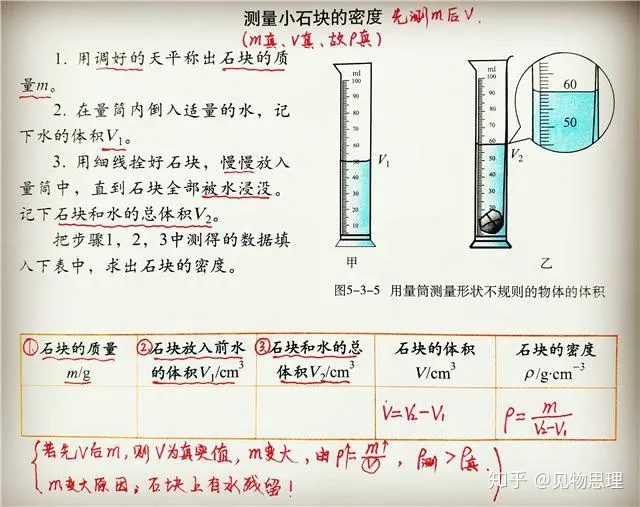 测量小石块的密度 先测m后V.
(m真、V真、故ρ真)
1. 用调好的天平称出石块的质
量m。
2. 在量筒内倒入适量的水，记
下水的体积V₁。
3. 用细线拴好石块，慢慢放入
量筒中，直到石块全部被水浸没。
记下石块和水的总体积V₂。
把步骤1，2，3中测得的数据填
入下表中，求出石块的密度。
ml
100
90
80
70
60
50
40
30
20
10
V₁
甲
ml
100
90
80
70
60
50
40
30
20
V₂
乙
60
50
图5-3-5 用量筒测量形状不规则的物体的体积
①石块的质量
m/g
②石块放入前水
的体积V₁/cm³
③石块和水的总
体积V₂/cm³
石块的体积
V/cm³
石块的密度
ρ/g·cm⁻³
V=V₂-V₁
ρ=m/(V₂-V₁)
若先V后m，则V为真实值，m变大，由ρ↑=m↑/V，ρ测>ρ真.
m变大原因：石块上有水残留！
知乎 @见物思理